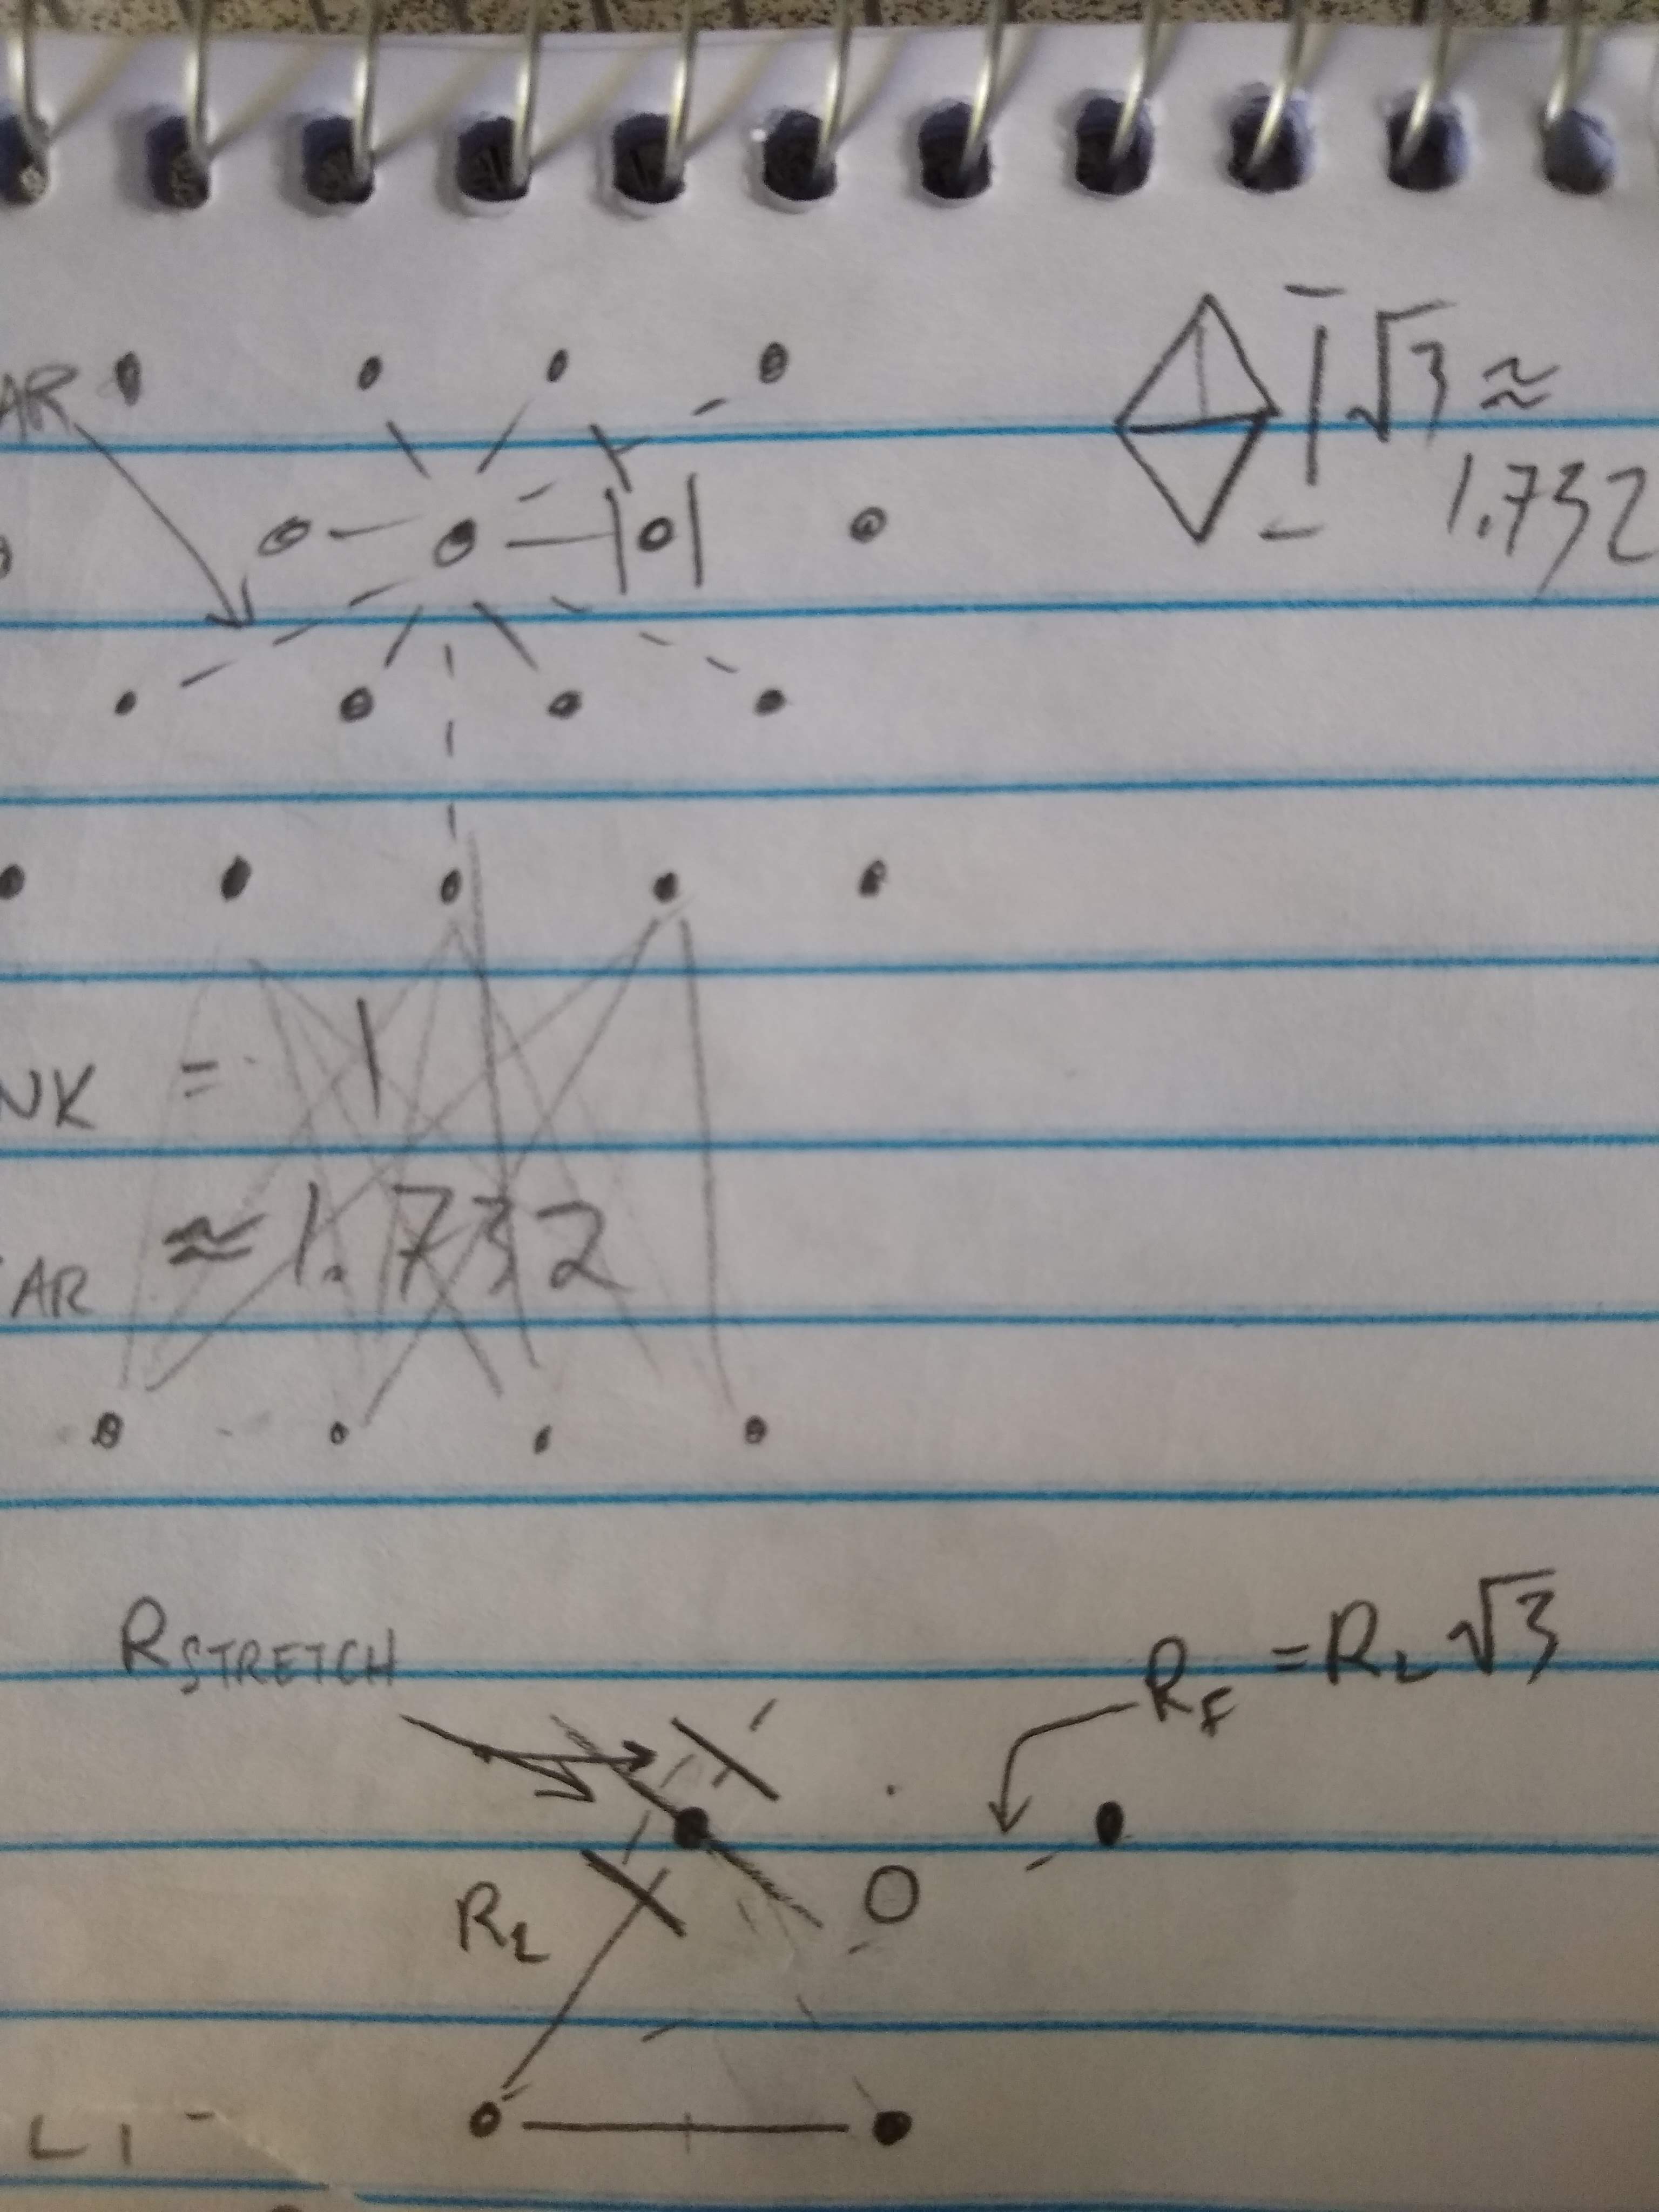 AR
√3 ≈
1.732
NK = 1
AR ≈ 1.732
RSTRETCH
RF = RL √3
RL